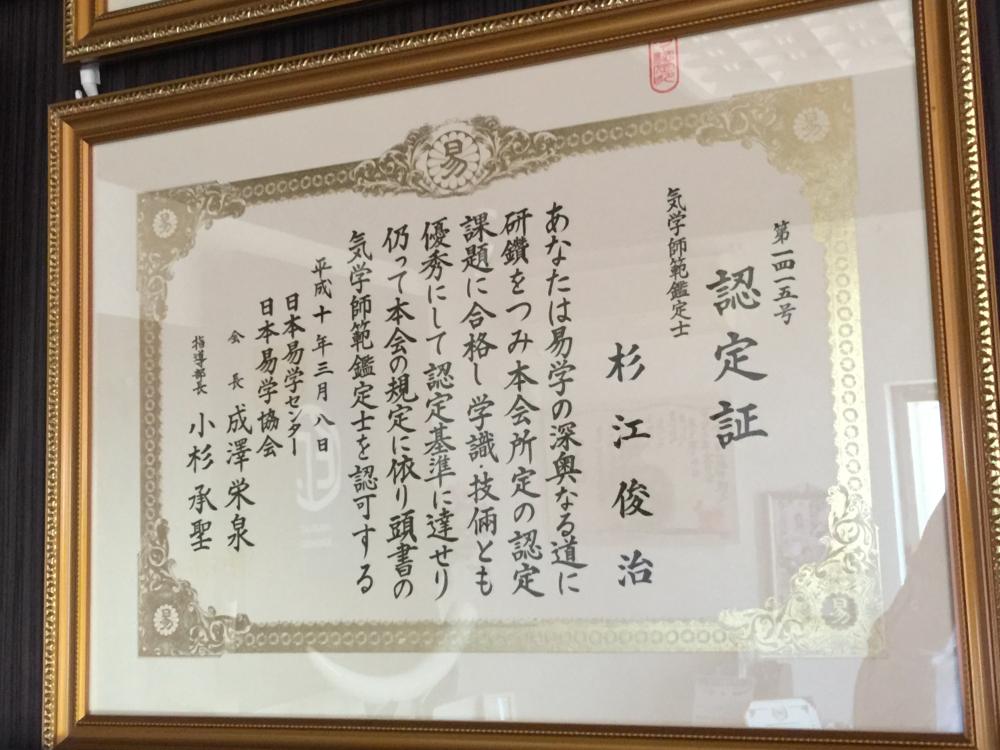 易
第一四一五号
認定証
気学師範鑑定士
杉江俊治
あなたは易学の深奥なる道に
研鑽をつみ本会所定の認定
課題に合格し学識・技倆とも
優秀にして認定基準に達せり
仍って本会の規定に依り頭書の
気学師範鑑定士を認可する
平成十年三月八日
日本易学センター
日本易学協会
会長 成澤栄泉
指導部長 小杉承聖
易
易
易
易